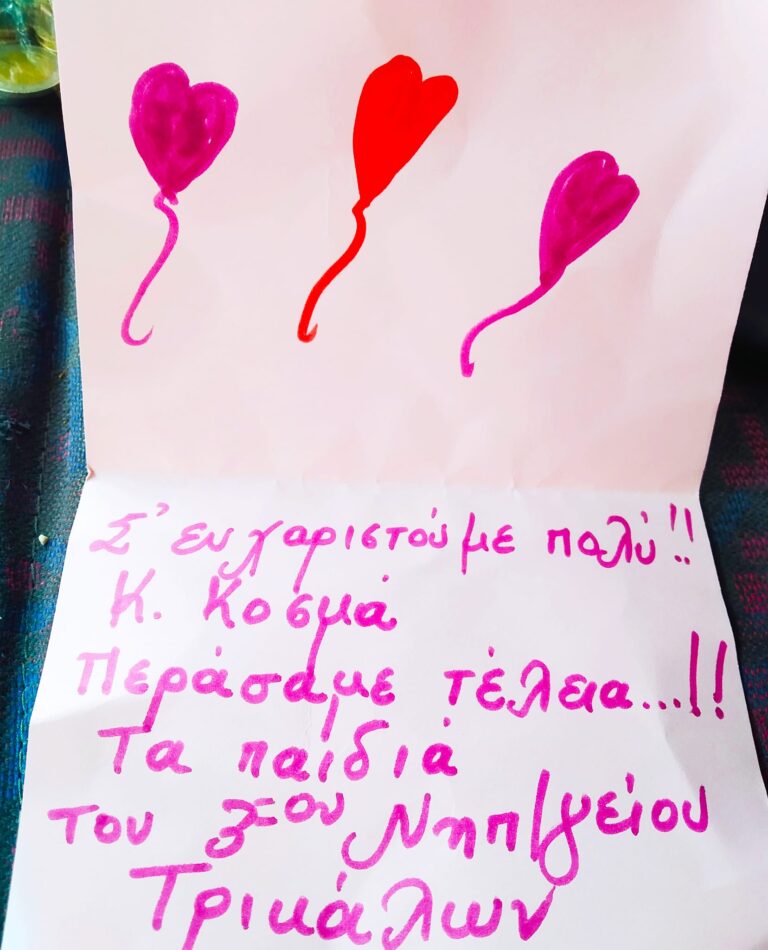 Σ' ευχαριστούμε πολύ!!
Κ. Κοσμά
Περάσαμε τέλεια...!!
Τα παιδιά
του 3ου Νηπ/γείου
Τρικάλων